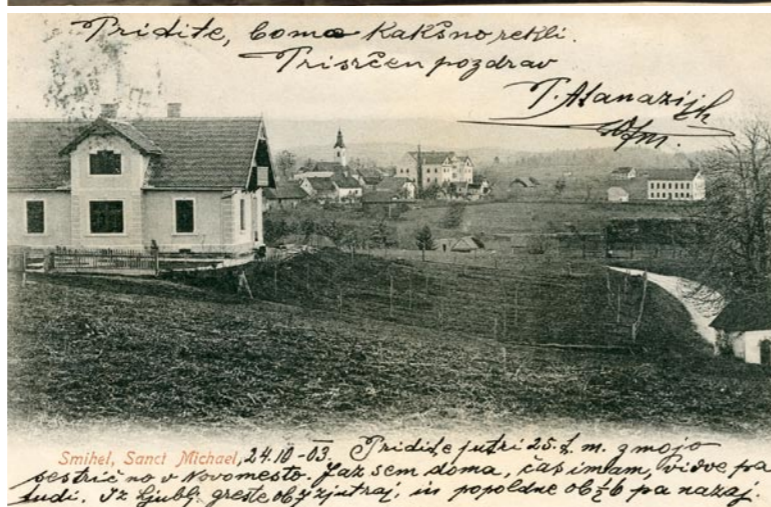 Pridite, boma kakšno rekli.
Prisrčen pozdrav
P. Atanazij
Ofm.
Smihel, Sanct Michael, 24.10-03. Pridite jutri 25. t. m. z mojo
sestrično v Novomesto. Jaz sem doma, čas imam, vidve pa
tudi. Iz Ljublj. greste ob 7 zjutraj, in popoldne ob ½6 pa nazaj.